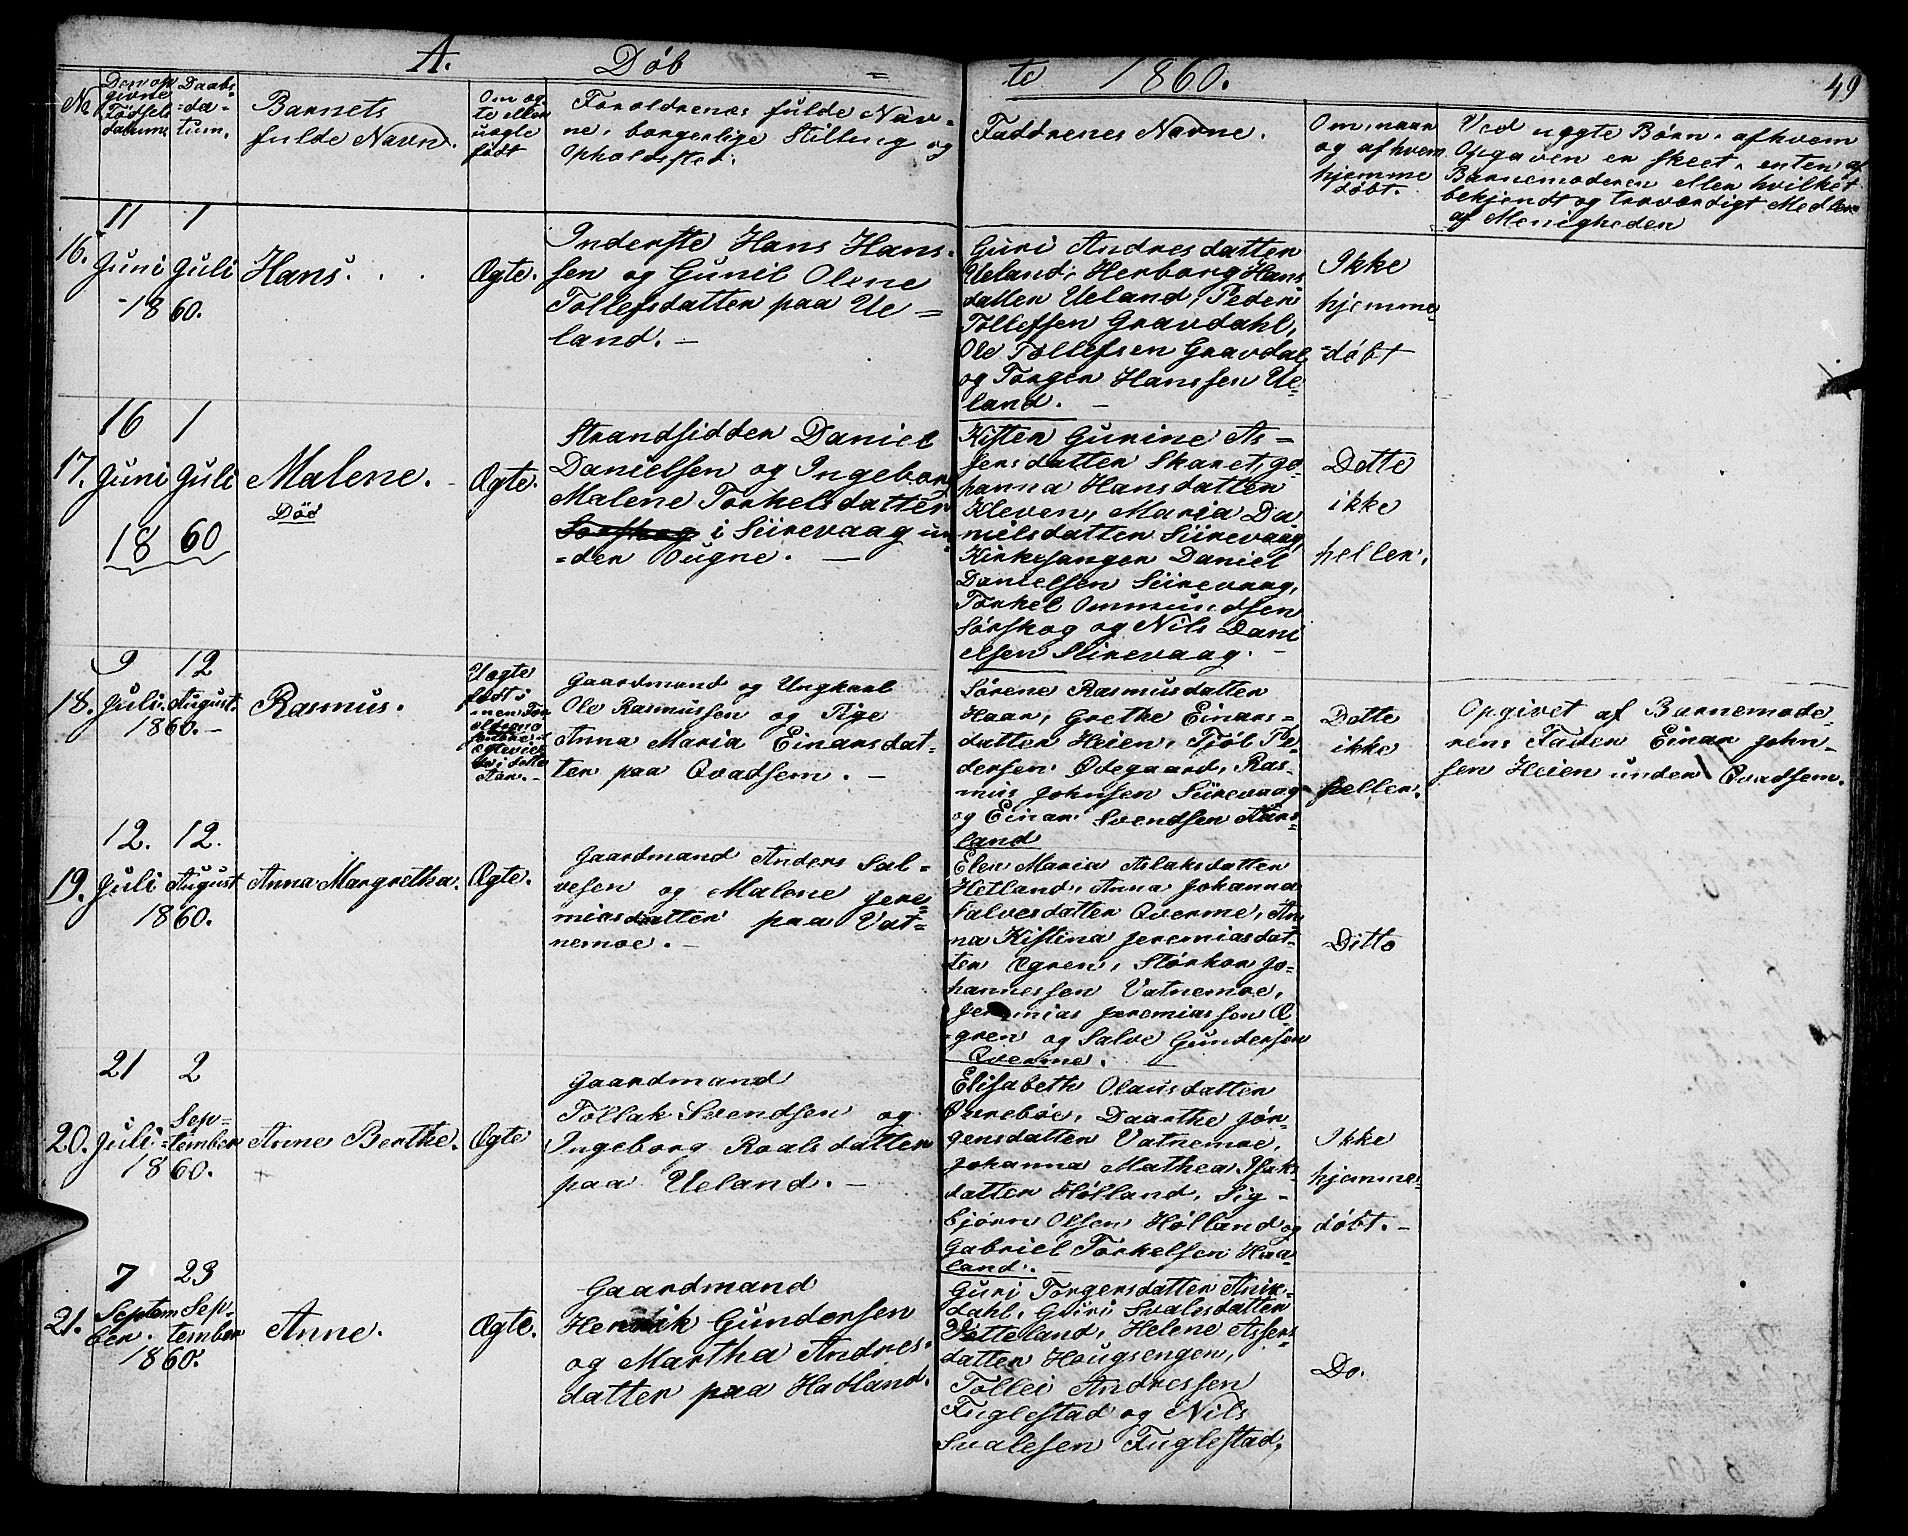 A. Døb = te 1860. 49
No
Den op
givne
Fødsels
datum
Daabs-
=da-
tum.
Barnets
fulde Navn.
Om æg
te eller
uægte
født
Forældrenes fulde Nav-
ne, borgerlige Stilling og
Opholdssted.
Faddrenes Navne.
Om, naar
og af hvem
hjemme
døbt.
Ved uægte Børn, af hvem
Opgaven er skeet, enten af
Barnemoderen eller hvilket
bekjendt og troværdigt Medlem
af Menigheden
16.
11
Juni
1
Juli
1860.
Hans. . .
Ægte.
Inderste Hans Hans-
sen og Gunil Olene
Tollefsdatter paa Ue=
land. -
Guri Andresdatter
Ueland, Herborg Hans
datter Ueland, Peder
Tollefsen Gravdahl,
Ole Tollefsen Gravdal
og Torger Hanssen Ue-
land. -
Ikke
hjemme-
=døbt
17.
16
Juni
1
Juli
1860
Malene. -
Død
Ægte.
Strandsidder Daniel
Danielsen og Ingeborg
Malene Torkelsdatter
Sørskog i Siirevaag un-
=der Ougne. -
Kisten Gurine As=
sersdatter Skaret, Jo-
hanna Hansdatter
Kleven, Maria Da
nielsdatter Siirevaag,
Kirkesanger Daniel
Danielsen Siirevaag,
Torkel Ommundsen
Sørskog og Nils Dani
elsen Siirevaag. -
Dette
ikke
heller.
18.
9
Juli.
12
August.
1860. -
Rasmus.
Uægte
født,
men For
ældrene
Gaardmand og Ungkarl
Ole Rasmussen og Pige
Anna Maria Einarsdat-
ter paa Qvadsem. -
Sørene Rasmusdatter
Haar, Grethe Einars=
datter Heien, Tjøl Pe-
dersen Ødegaard, Ras-
mus Johnsen Siirevaag
og Einar Svendsen Aars-
land
Dette
ikke
heller.
Opgivet af Barnemode-
rens Fader Einar John-
sen Heien under Qvadsem.
19.
12.
Juli
12.
August
1860.
Anna Margretha.
Ægte.
Gaardmand Anders Sal=
vesen og Malene Jere-
miasdatter paa Vat-
nemoe. -
Elen Maria Aslaksdatter
Hetland, Anna Johanna
Salvesdatter Qverme, An
na Kistina Jeremiasdat-
ter Ægren, Størkor Jo-
hannessen Vatnemoe,
Jeremias Jeremiassen Æ-
-gren og Salve Gundersen
Qverme. -
Ditto
20.
21
Juli
2
Sep-
=tember
1860.
Anne Berthe.
Ægte
Gaardmand
Tollak Svendsen og
Ingeborg Roalsdatter
paa Ueland. -
Elisabeth Olausdatter
Øvrebøe, Daarthe Jør-
gensdatter Vatnemoe,
Johanna Mathea Isak-
datter Hølland, Sig-
bjørn Olsen Hølland og
Gabriel Torkelsen Haa-
land. -
Ikke
hjemme-
døbt. -
21.
7
Septem
ber.
23
Sep-
tember
1860.
Anne.
Ægte.
Gaardmand
Henrik Gundersen
og Martha Andres-
datter paa Hadland.
Guri Torgersdatter Anik-
dahl, Guri Svalesdatter
Vetteland, Helene Assers
datter Hougsengen,
Tollei Andressen
Fuglestad og Nils
Svalesen Fuglestad,
Do.